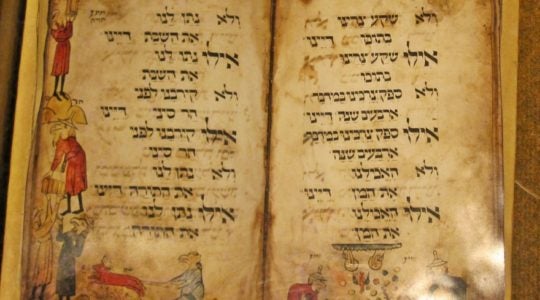 ולא שקע צרינו
בתוכו דיינו
אילו שקע צרינו
בתוכו
ולא ספק צרכינו במדבר
ארבעים שנה דיינו
אילו ספק צרכינו במדבר
ארבעים שנה
ולא האכילנו
את המן דיינו
אילו האכילנו
את המן
ולא נתן לנו
את השבת דיינו
אילו נתן לנו
את השבת
ולא קרבנו לפני
הר סיני דיינו
אילו קירבנו לפני
הר סיני
ולא נתן לנו
את התורה דיינו
אילו נתן לנו
את התורה